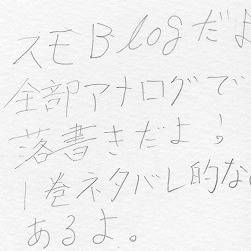 スモBlogだよ
全部アナログで
落書きだよ!
1巻ネタバレ的な
あるよ。